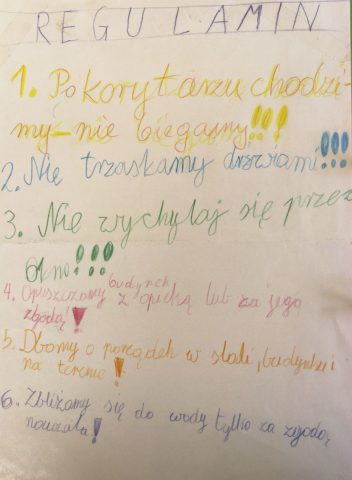 REGULAMIN
1. Po korytarzu chodzi-
my-nie biegajmy!!!
2. Nie trzaskamy drzwiami!!!
3. Nie wychylaj się przez
okno!!!
4. Opuszczamy budynek z opieką lub za jego
zgodą!
5. Dbamy o porządek w sali, budynku i
na terenie!
6. Zbliżamy się do wody tylko za zgodą
nauczela!